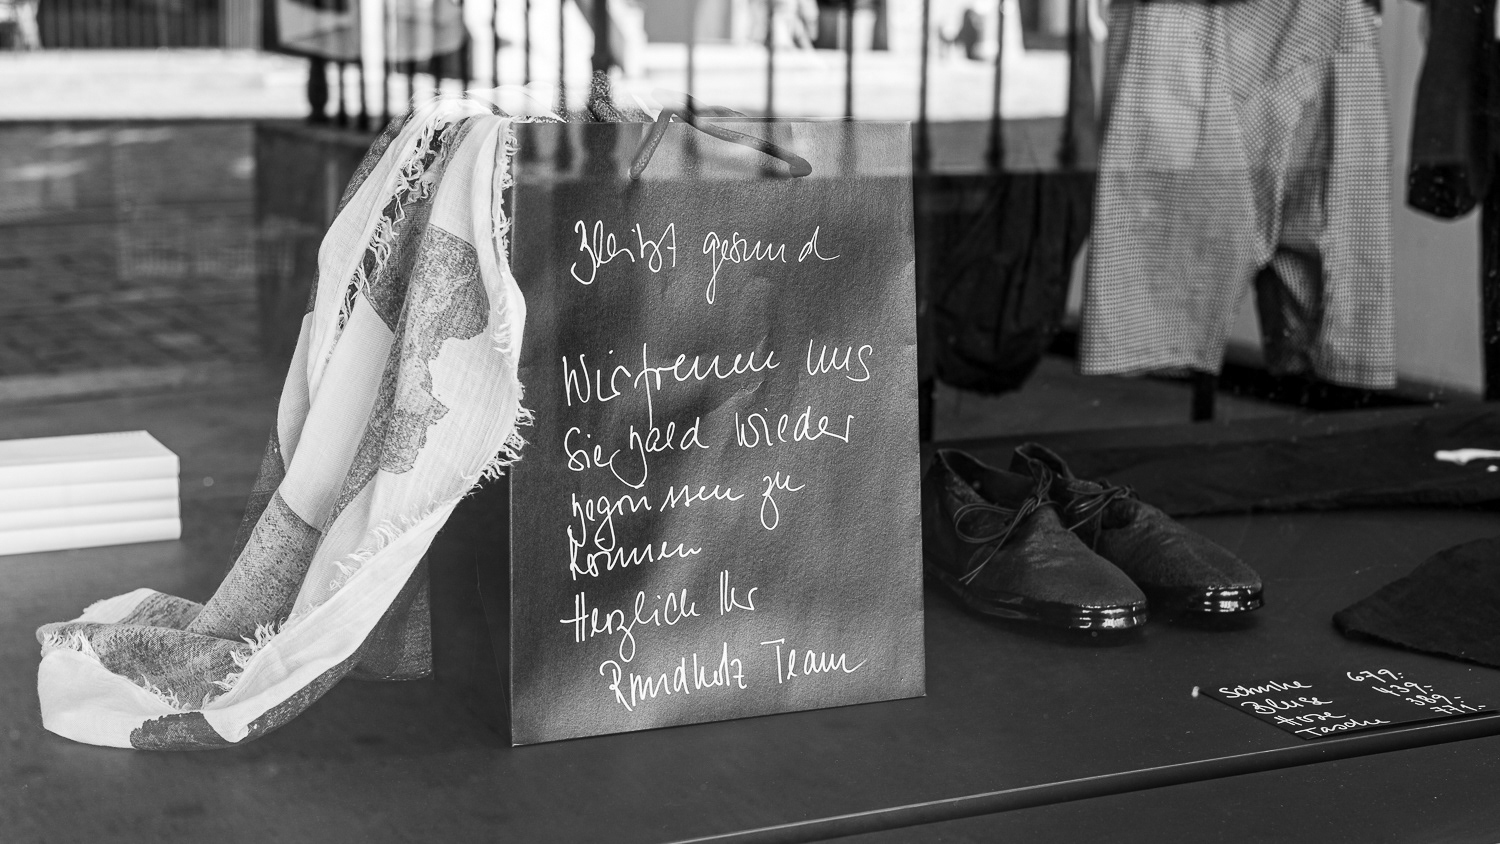 Bleibt gesund
Wir freuen uns
Sie bald wieder
begrüssen zu
können
Herzlich Ihr
Rundholz Team
Schuhe 679.-
Bluse 439.-
Hose 389.-
Tasche 771.-